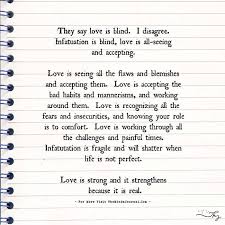 They say love is blind. I disagree.
Infatuation is blind, love is all-seeing
and accepting.
Love is seeing all the flaws and blemishes
and accepting them. Love is accepting the
bad habits and mannerisms, and working
around them. Love is recognizing all the
fears and insecurities, and knowing your role
is to comfort. Love is working through all
the challenges and painful times.
Infatuation is fragile and will shatter when
life is not perfect.
Love is strong and it strengthens
because it is real.